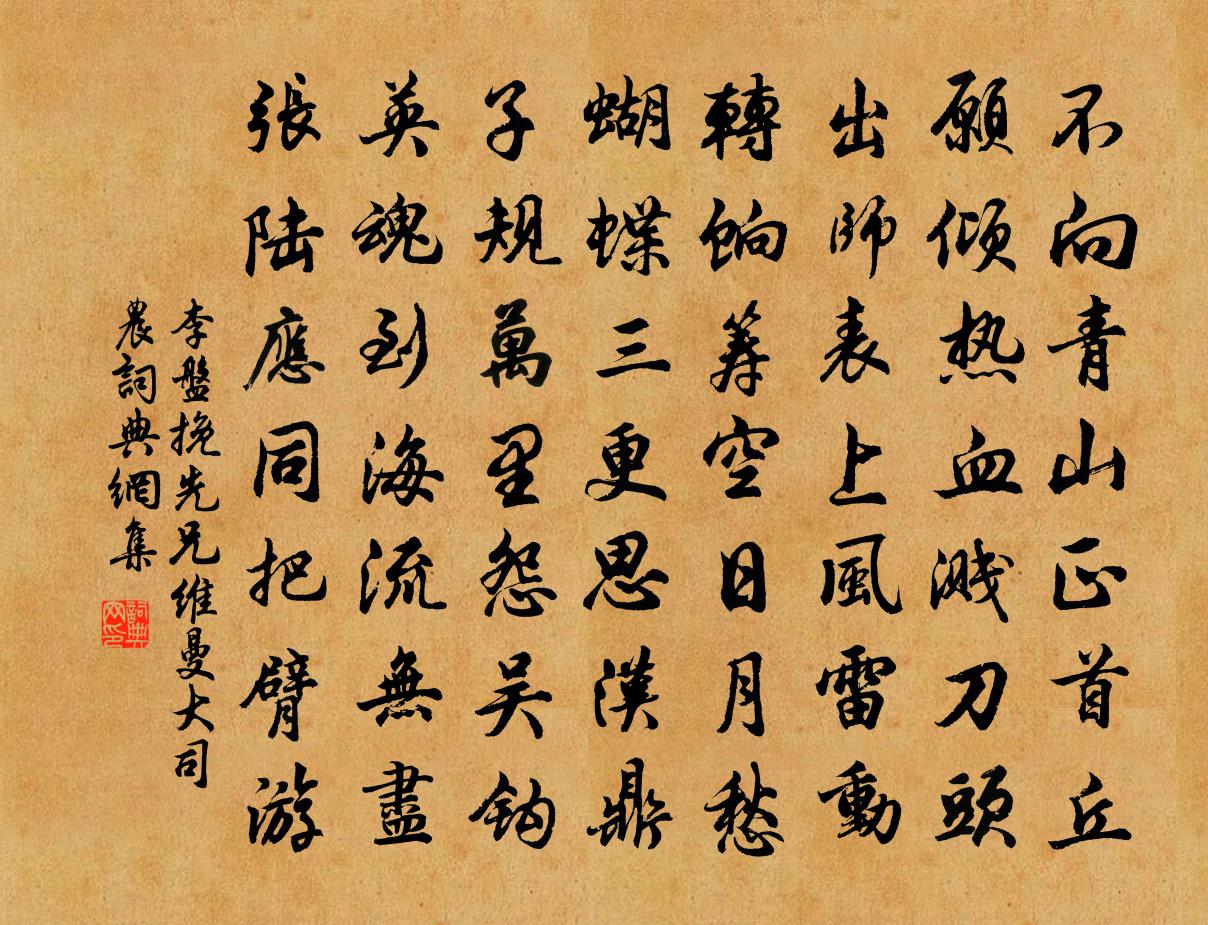 不向青山正首丘
願傾热血濺刀頭
出師表上風雷動
轉餉籌空日月愁
蝴蝶三更思漢鼎
子規萬里怨吴鈎
英魂到海流無盡
張陆應同把臂游
李盤挽先兄維曼大司
農詞典網集
詞典网印